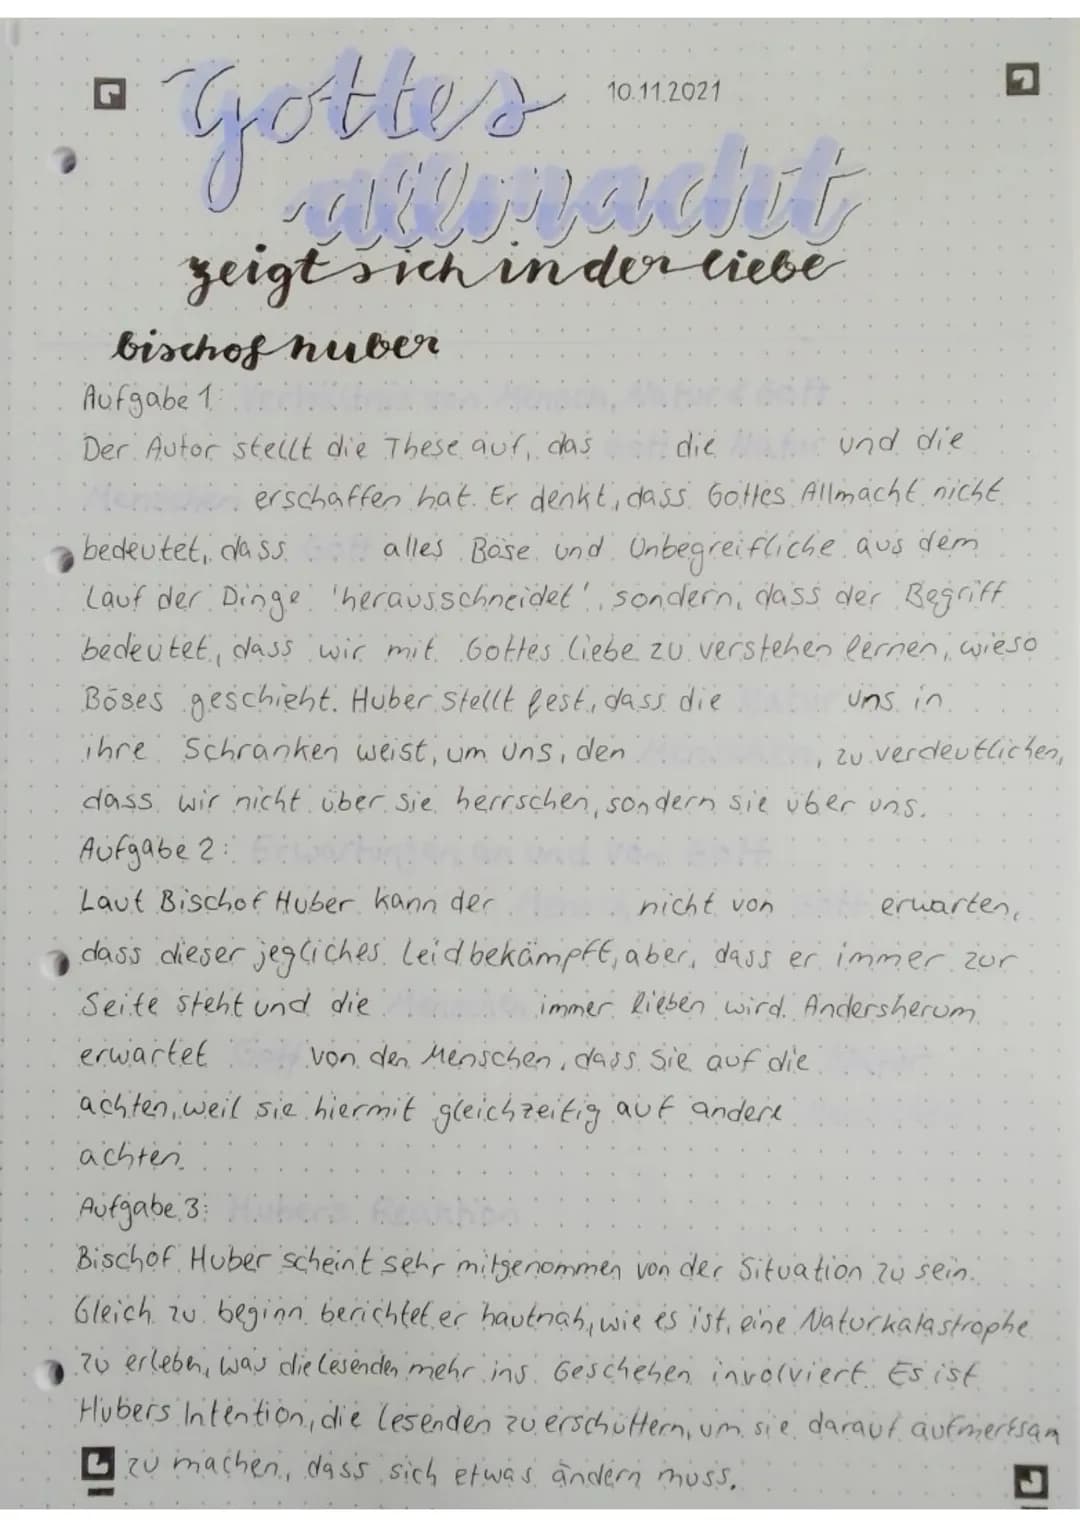 Gottes
10.11.2021
allmacht
zeigt sich in der liebe
bischof huber
Aufgabe 1: Verhältnis von Mensch, Natur & Gott
Der Autor stellt die These auf, das Gott die Natur und die
Menschen erschaffen hat. Er denkt, dass Gottes Allmacht nicht
bedeutet, dass Gott alles Böse und Unbegreifliche aus dem
Lauf der Dinge 'herausschneidet', sondern, dass der Begriff
bedeutet, dass wir mit Gottes Liebe zu verstehen lernen, wieso
Böses geschieht. Huber stellt fest, dass die Natur uns in
ihre Schranken weist, um uns, den Menschen, zu verdeutlichen,
dass wir nicht über sie herrschen, sondern sie über uns.
Aufgabe 2: Erwartungen an und von Gott
Laut Bischof Huber kann der nicht von Gott erwarten,
dass dieser jegliches Leid bekämpft, aber, dass er immer zur
Seite steht und die Menschen immer lieben wird. Andersherum
erwartet Gott von den Menschen, dass sie auf die
achten, weil sie hiermit gleichzeitig auf andere
achten.
Aufgabe 3: Hubers Reaktion
Bischof Huber scheint sehr mitgenommen von der Situation zu sein.
Gleich zu beginn berichtet er hautnah, wie es ist, eine Naturkatastrophe
zu erleben, was die Lesenden mehr ins Geschehen involviert. Es ist
Hubers Intention, die Lesenden zu erschüttern, um sie darauf aufmerksam
zu machen, dass sich etwas ändern muss.